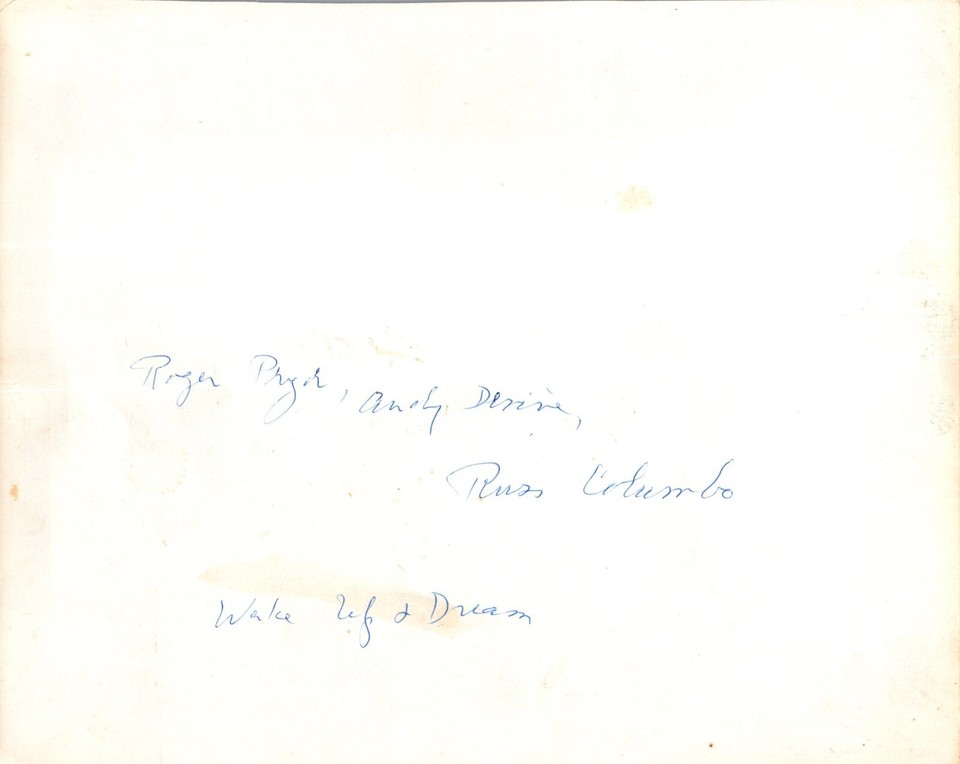 Roger Pryor, Andy Devine,
Russ Columbo
Wake Up & Dream